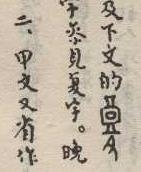 及下文的
字参見复字。晚
二、甲文又省作